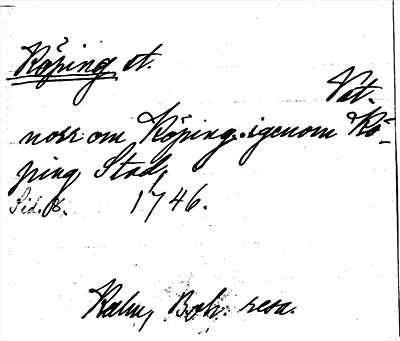 Köping st.
Vst.
norr om Köping, igenom Kö-
ping Stad,
Sid. 8. 1746.
Kalm, Boh. resa.